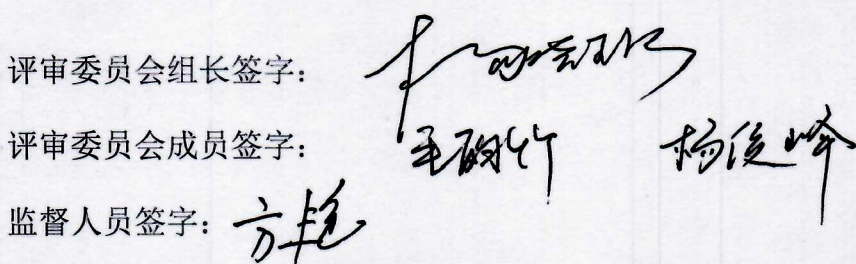 评审委员会组长签字：
评审委员会成员签字： 杨俊峰
监督人员签字：方艳